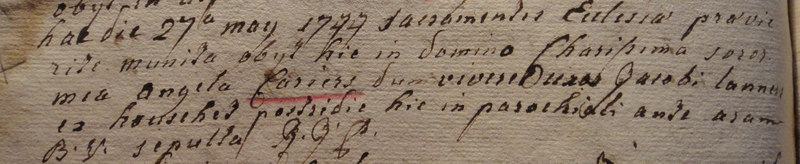 hac die 27a may 1777 sacramentis Eclesiæ prævie
rite munita obyt hic in domino Charissima soror
mea angela Cariers dum viveret uxor Jacobi lannen
ex houschet postridie hic in parochiali ante aram
B. V. sepulta R. I. P.